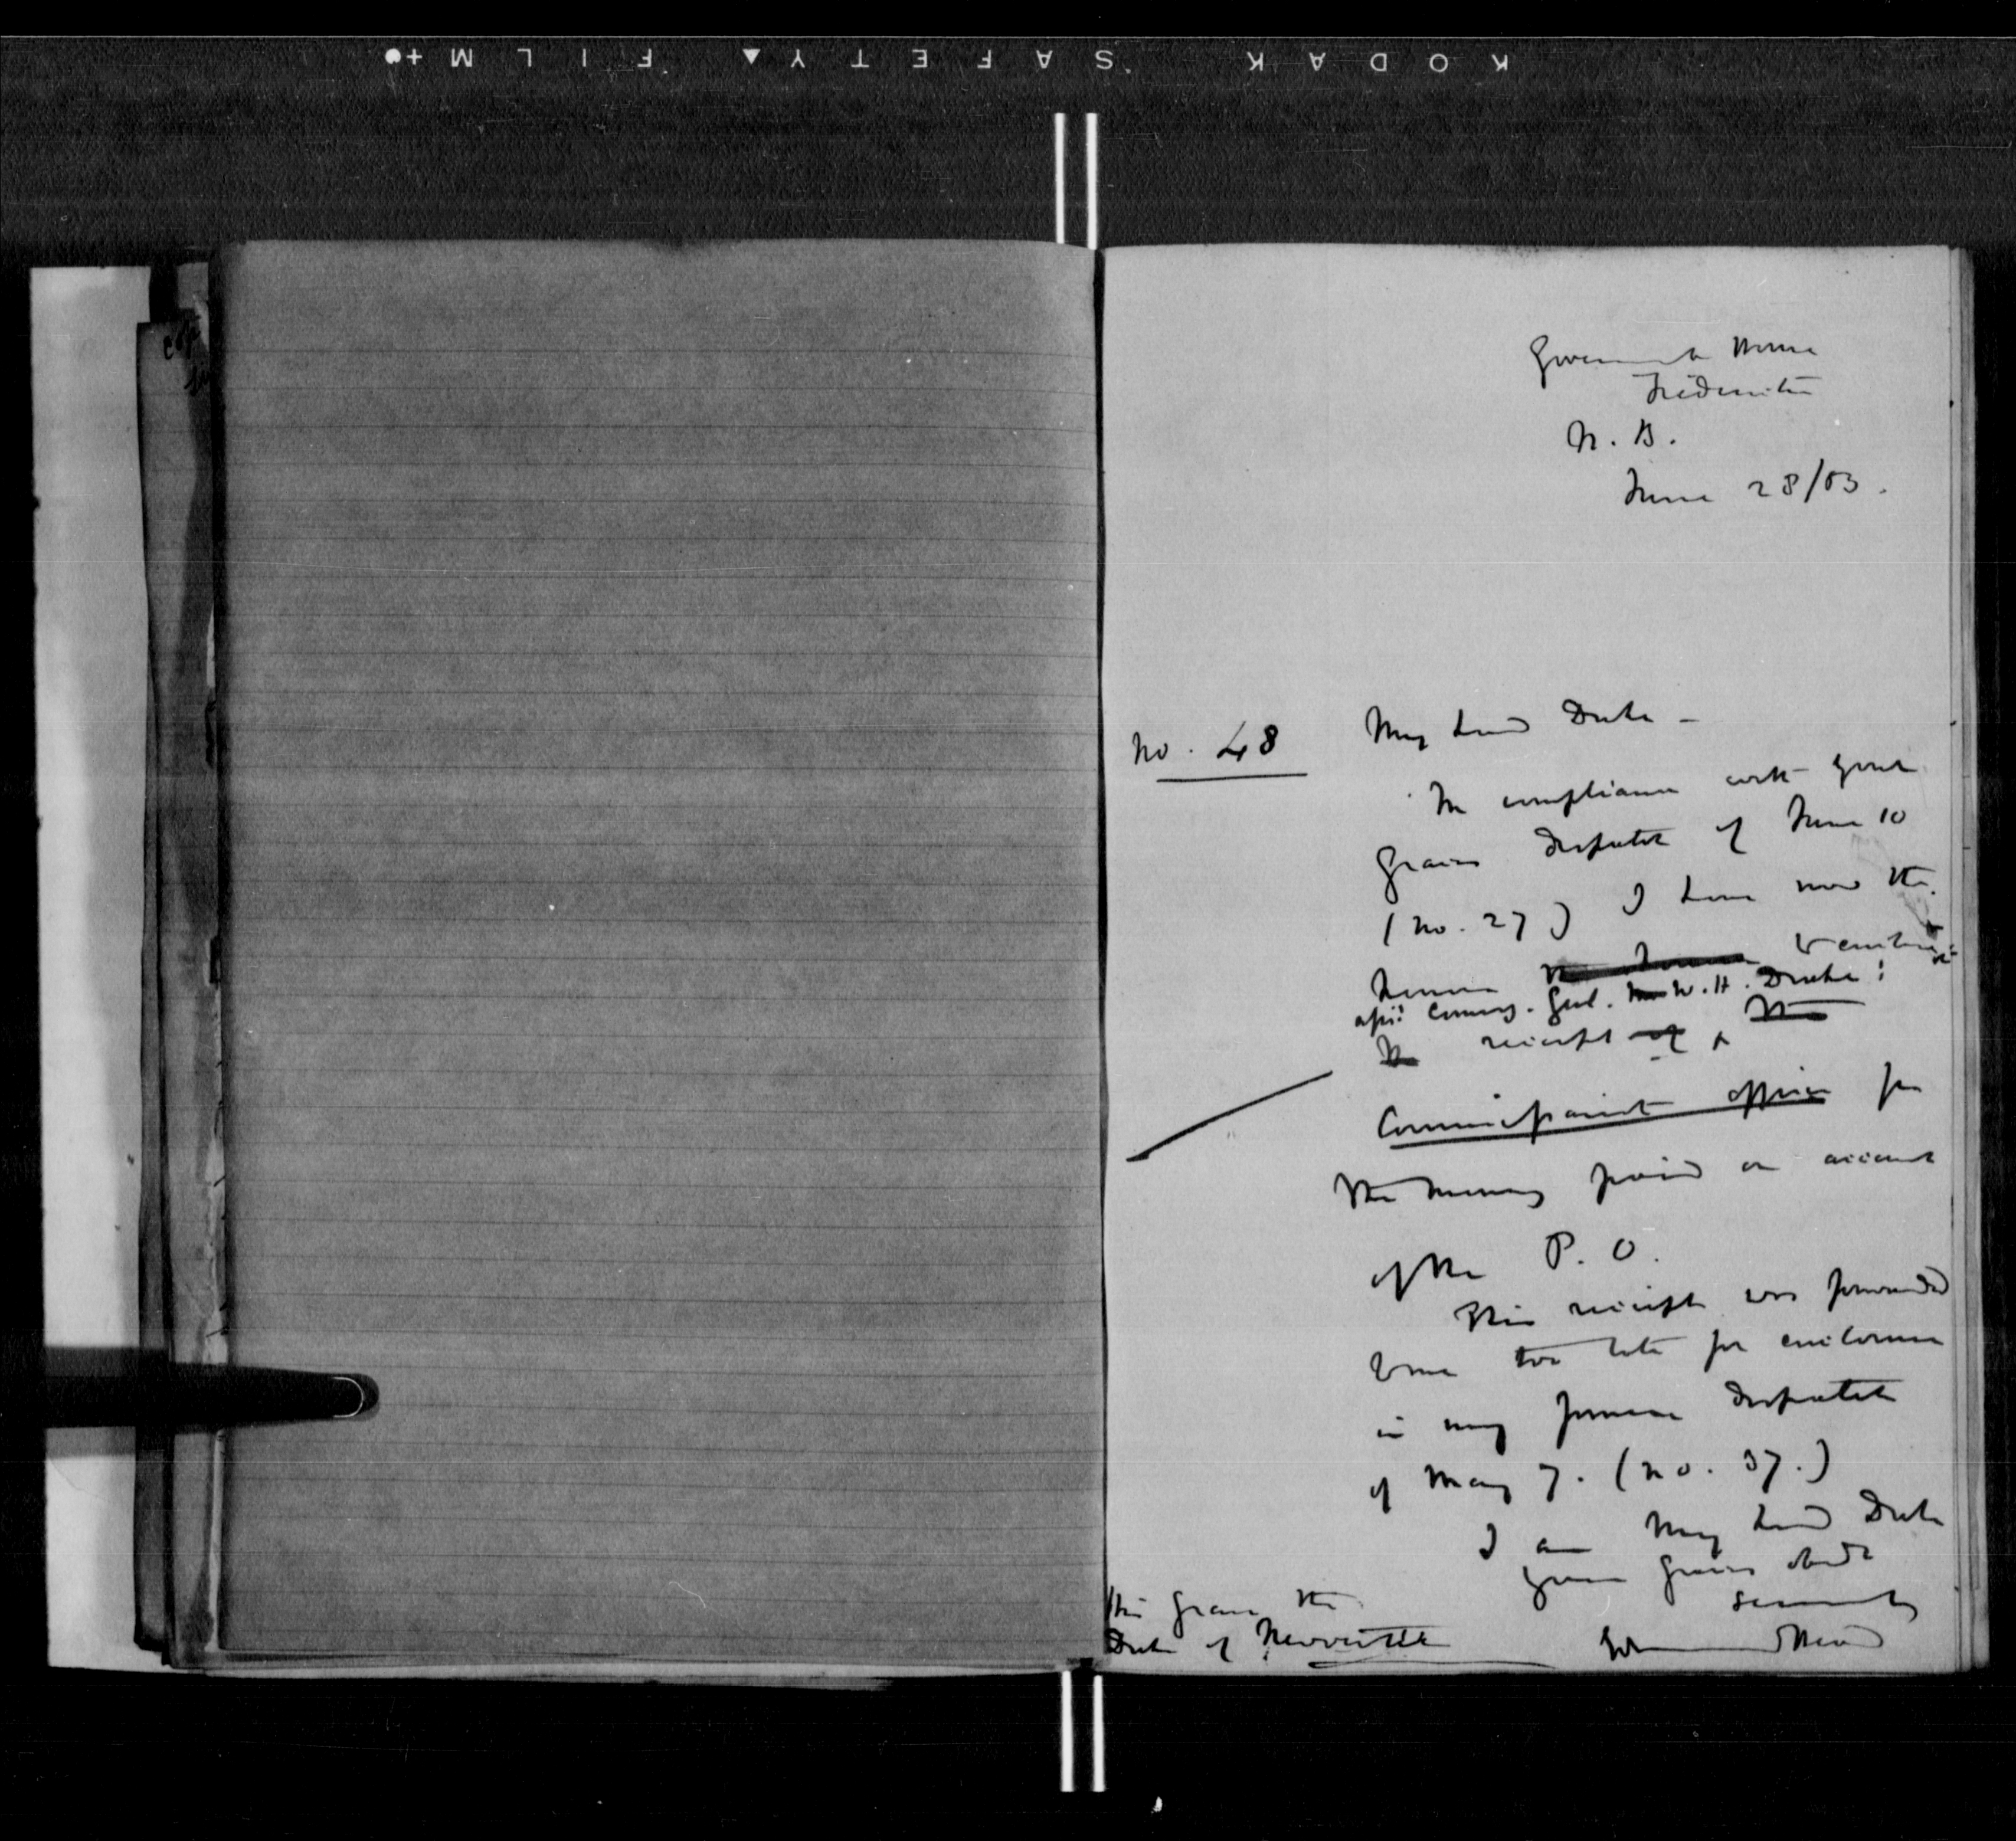 KODAK SAFETY FILM
Government House
Fredericton
N. B.
June 28/53.
No. 48
My Lord Duke -
In compliance with your
Graces Despatch of June 10
(No. 27) I have now the
honor to enclose
assi: Commy. Genl. W. H. Drake's
receipt
Commissariat officer for
the money paid on account
of the P. O.
This receipt was forwarded
to me too late for enclosure
in my former Despatch
of May 7. (No. 37.)
I am My Lord Duke
your Graces obedt
servant
His Grace the
Duke of Newcastle
Edmund Head